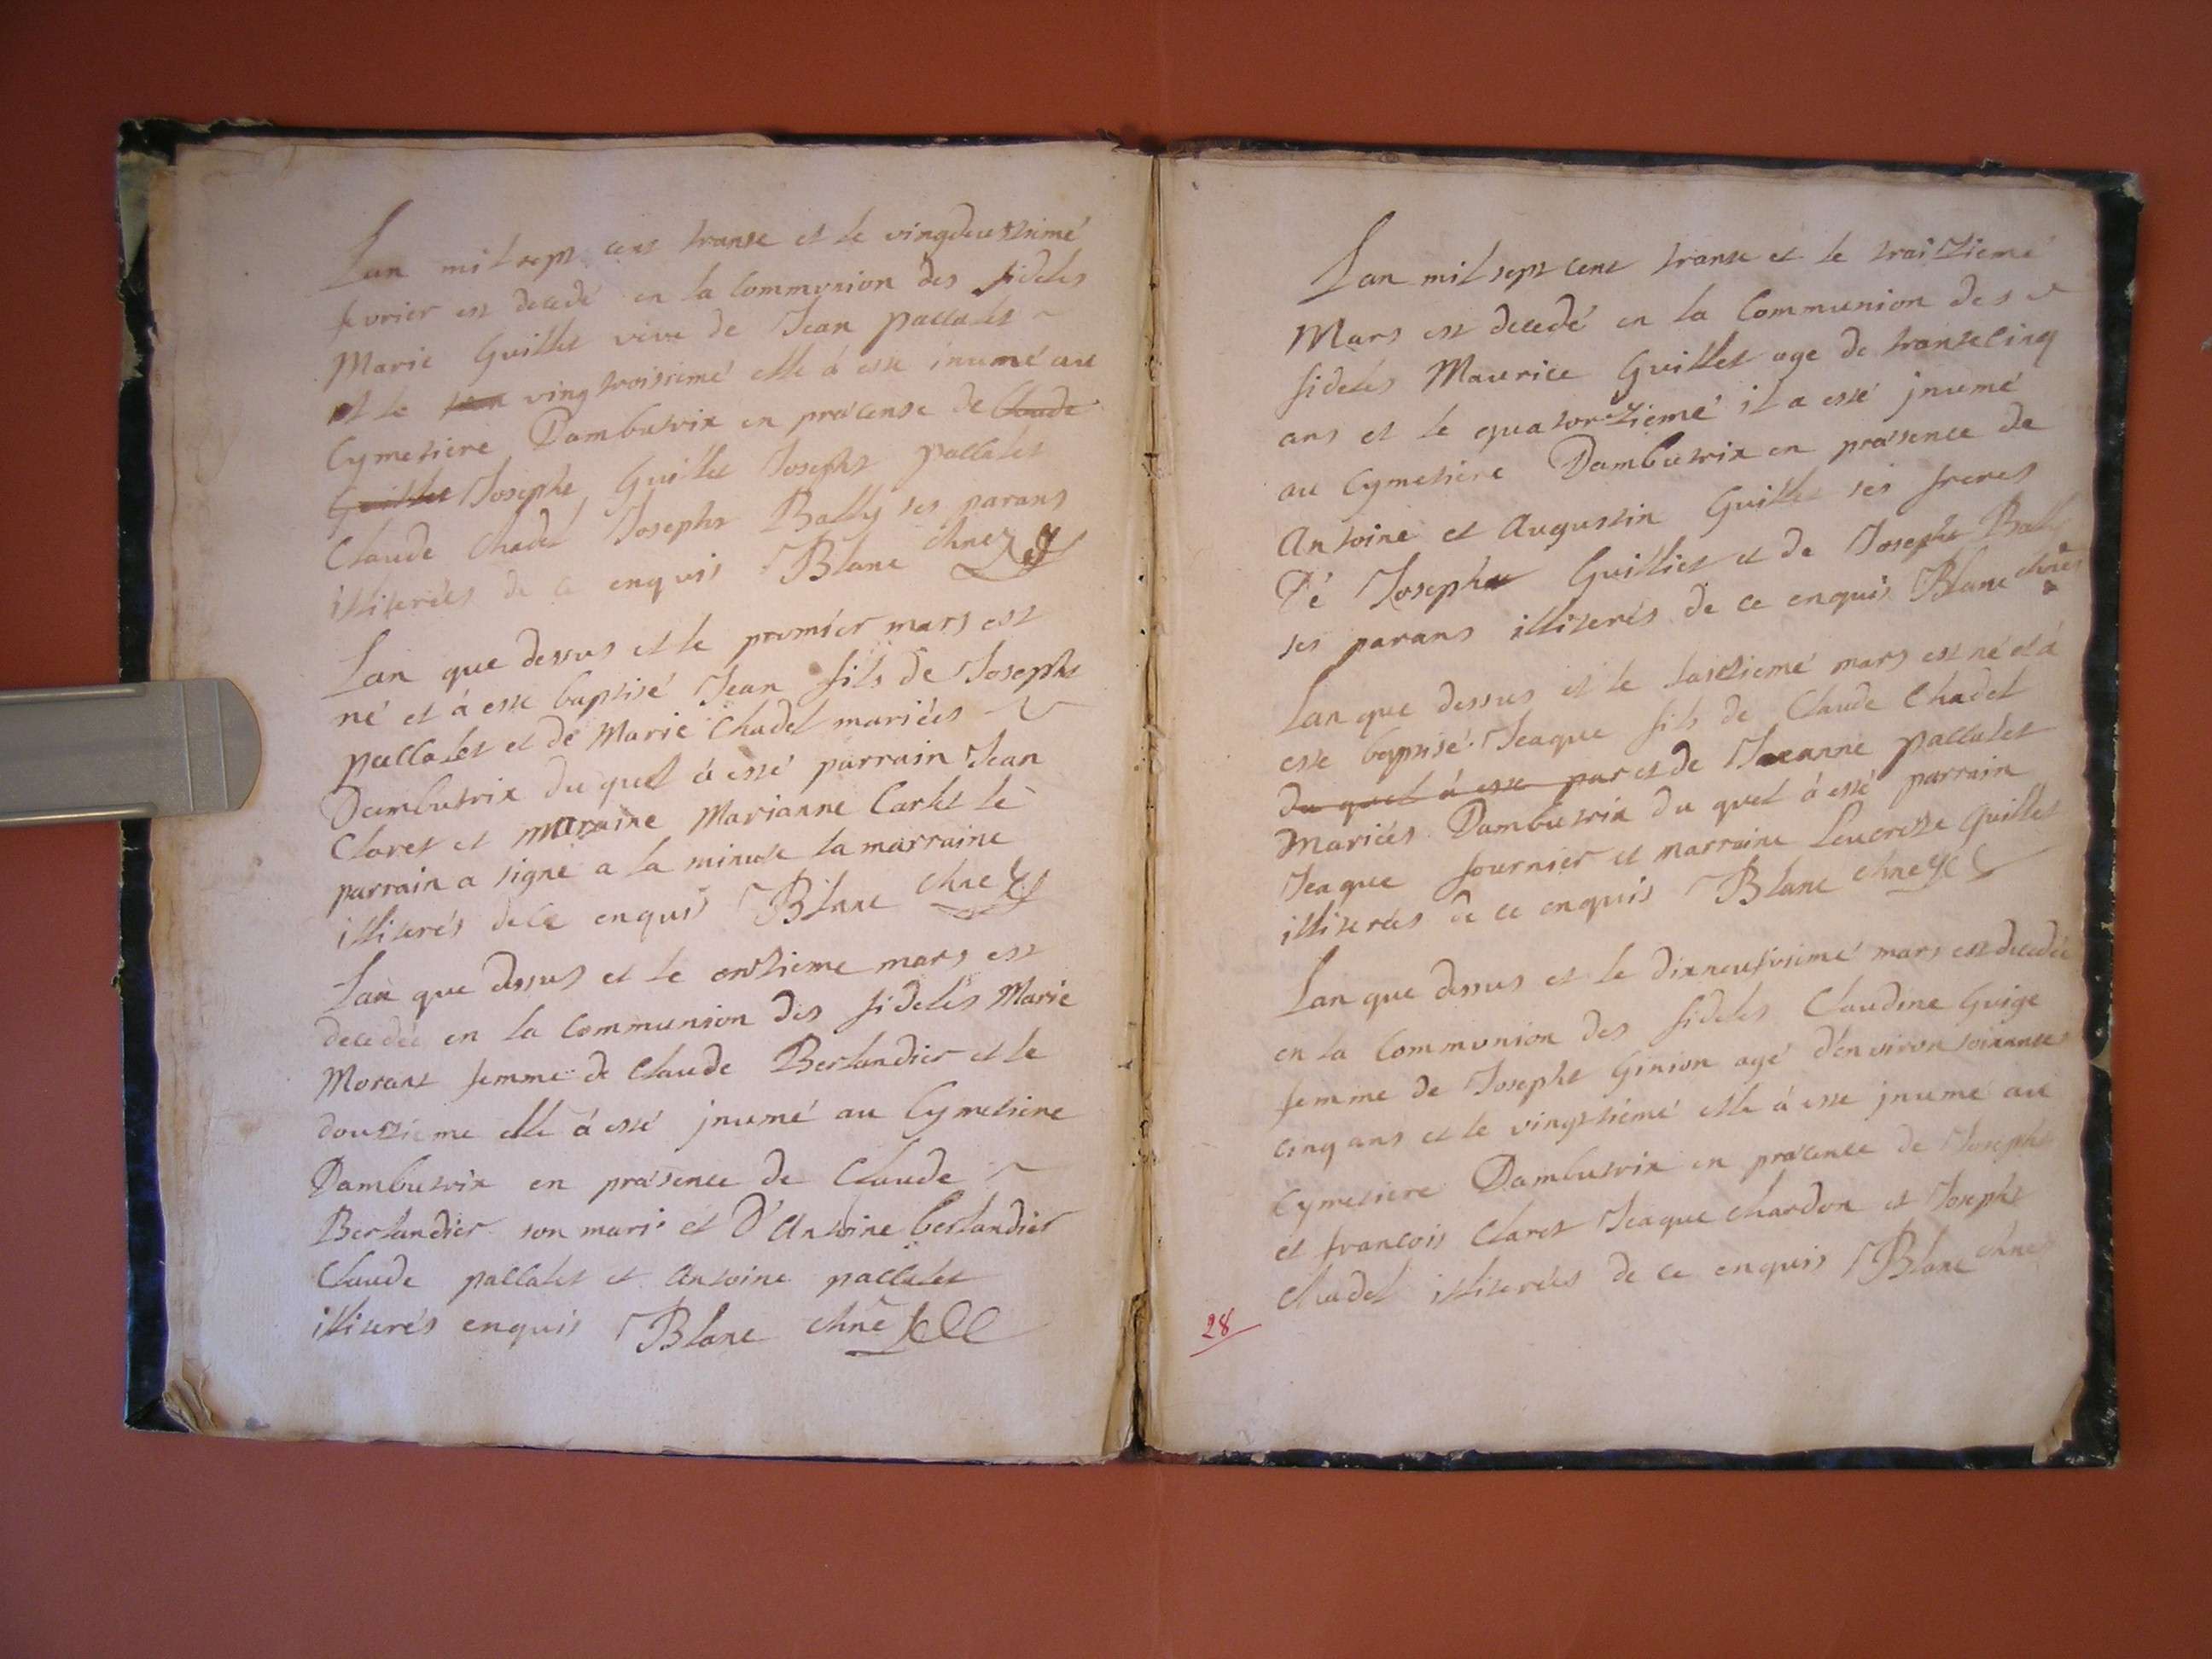 Lan mil sept cent trante et le vingdeuxziemé
fevrier est decedé en la Communion des fideles
Marie Guillet veive de Jean pallatet
et le vingtroisiemé elle á esté inumé au
Cymetiere Dambutrix en præcense de Claude
Guillet Josepht Guillet Josepht pallatet
Claude Chadel Josepht Bally ses parans
illiterées de ce enquis Blanc chne
Lan que dessus et le premier mars est
né et á esté baptisé Jean fils de Josepht
pallatet et de Marie Chadel mariées
Dambutrix du quel á esté parrain Jean
Claret et maraine Marianne Carlet le
parrain a signé a la minute la marraine
illiterés de ce enquis Blanc chne
Lan que dessus et le onzieme mars est
decedée en la Communion des fidelés Marie
Morant femme de Claude Berlandier et le
douzzieme elle á esté jnumé au Cymetiere
Dambutrix en præsence de Claude
Berlandier son mari et D'Antoine berlandier
Claude pallatet et Antoine pallatet
illiterés enquis Blanc chne
Lan mil sept cent trante et le traizieme
Mars est decedé en la Communion des
fidelés Maurice Guillet age de trantecinq
ans et le quatorzieme il a esté jnumé
au Cymetiere Dambutrix en præsence de
Antoine et Augustin Guillet ses freres
Dé Josepht Guilliet et de Josepht Bally
ses parans illiterés de ce enquis Blanc chne
Lan que dessus et le mars est né et á
esté baptisé Jeaque fils de Claude Chadel
du quel á esté par et de Jeanne pallatet
Mariées Dambutrix du quel á esté parrain
Jeaque fournier et marraine Leucresse Guillet
illiterées de ce enquis Blanc chne
Lan que dessus et le dixneufvieme mars est decedée
en la Communion des fideles Claudine Guige
femme de Josepht Ginion agé d'environ soixante
cinq ans et le vingtiémé elle á esté jnumé au
Cymetiere Dambutrix en præcence de Josepht
et francois Claret Jeaque chardon et Josepht
Chadel illiterées de ce enquis Blanc chne
28